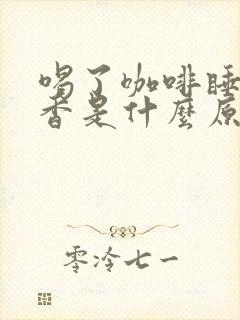 喝了咖啡睡
香是什麼原
零冷七一